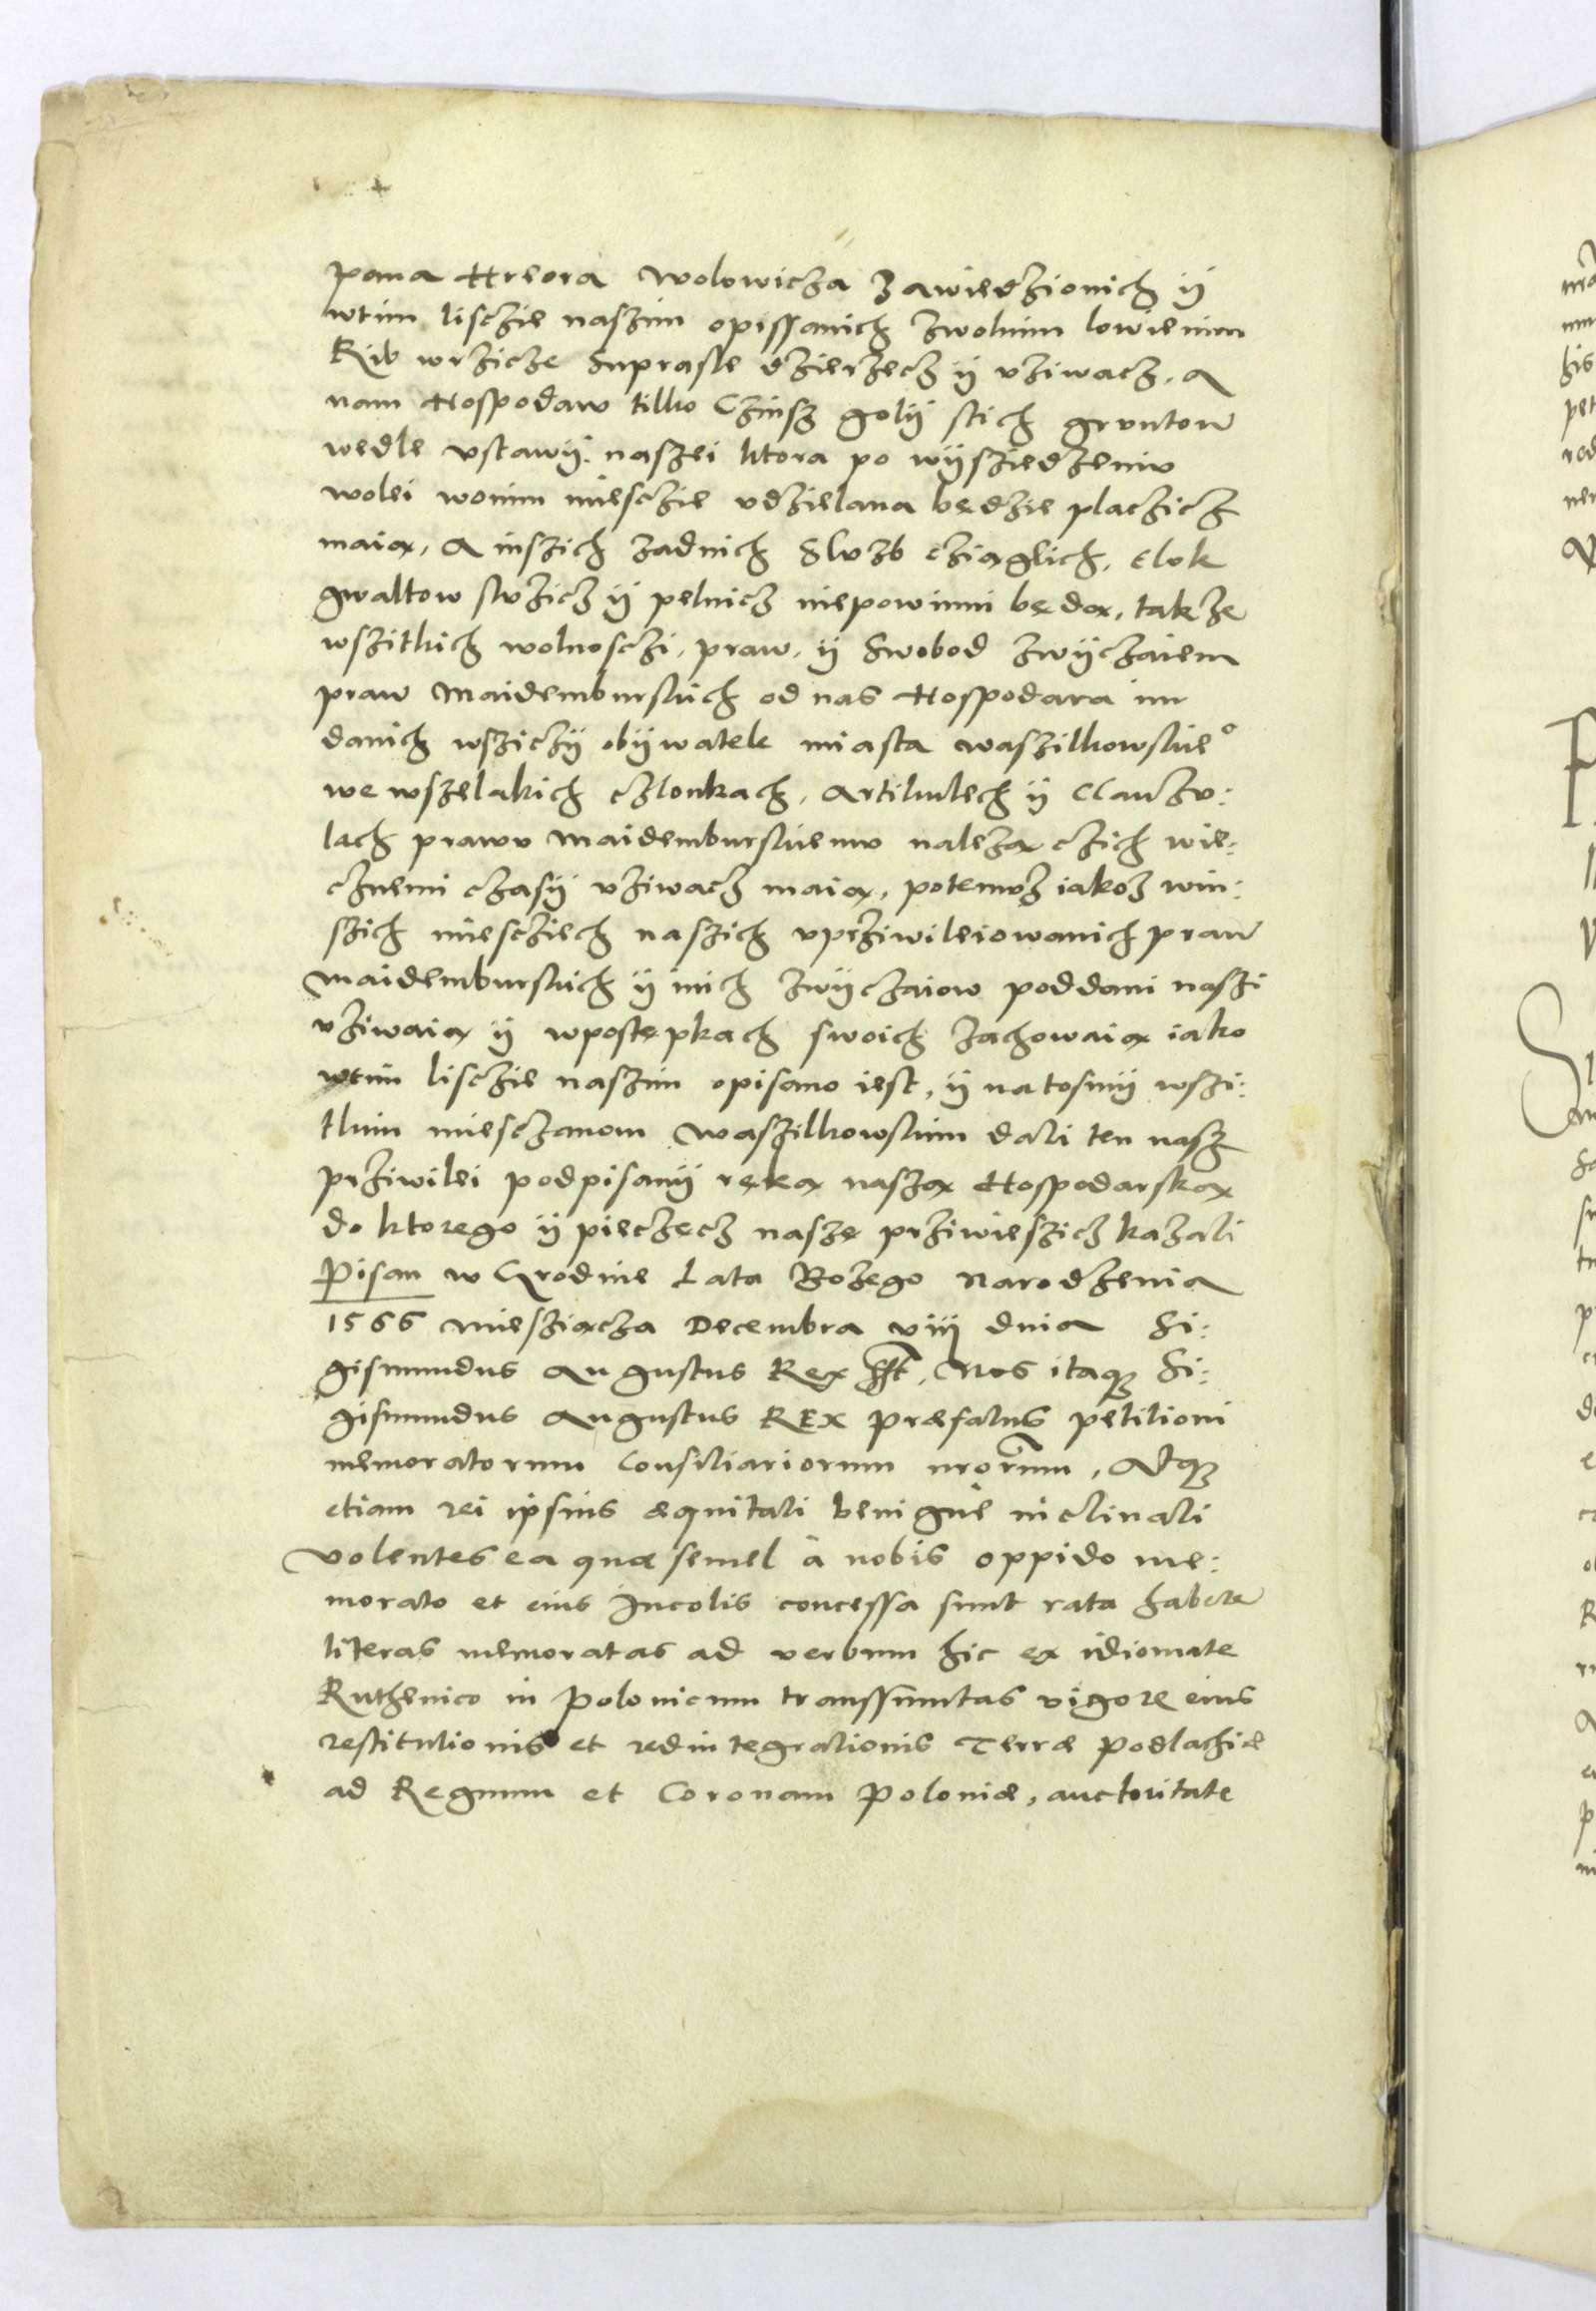 pana Hreora Wolowicza Zawiedzionich ÿ
wtim lisczie naszim opissanich zwolnim lowienim
Rib wrzicze Suprasle dzierzecz ÿ vziwacz. A
nam Hospodaru tilko Czinsz golÿ stich gruntow
wedle vstawÿ naszei ktora po wÿsziedzeniu
wolei wonim miesczie vdzielana będzie placzicz
maią, A inszich zadnich Sluzb cziąglich, tlok
gwaltow sluzicz ÿ pelnicz niepowinni będą, takze
wszitkich wolnosczi, praw, ÿ Swobod zwÿczaiem
praw Maidemburskich od nas Hospodara im
danich wsziczÿ obÿwatele miasta waszilkowskie°
we wszelakich czlonkach, Artikulech ÿ Clauzu:
lach prawu Maidemburskiemu nalezączich wie:
cznemi czasÿ vziwacz maią, potemuz iakoz win:
szich miescziech naszich vprziwileiowanich praw
Maidemburskich ÿ inich zwÿczaiow poddani naszi
vziwaią ÿ wpostępkach swoich zachowaią iako
wtim lisczie naszim opisano iest, ÿ natosmÿ wszi:
tkim miesczanom Waszilkowskim dali ten nasz
prziwilei podpisanÿ ręką naszą Hospodarską
do ktorego ÿ pieczęcz naszę prziwieszicz kazali
Pisan w Grodnie Lata Bozego Narodzenia
1566 Miesziącza Decembra viij dnia Si:
gismundus Augustus Rex sst, Nos itaq Si:
gismundus Augustus REx præfatus petitioni
memoratorum Consiliariorum nrorum, Atq
etiam rei ipsius æquitati benigne inclinati
volentes ea quæ semel à nobis oppido me:
morato et eius Incolis concessa sunt rata habere
literas memoratas ad verbum hic ex idiomate
Ruthenico in Polonicum transsumtas vigore eius
restitutionis et redintegrationis Terræ Podlachiæ
ad Regnum et Coronam Poloniæ, auctoritate